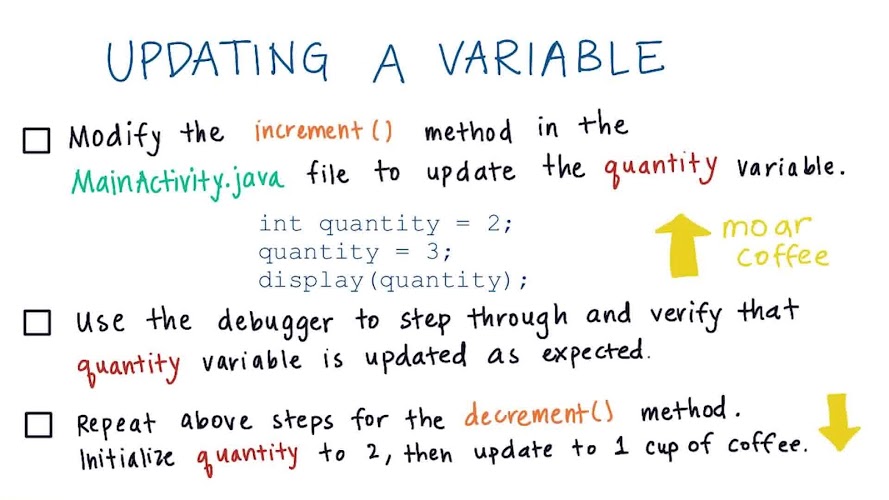 UPDATING A VARIABLE
Modify the increment() method in the
MainActivity.java file to update the quantity variable.
int quantity = 2;
quantity = 3;
display(quantity);
moar
coffee
Use the debugger to step through and verify that
quantity variable is updated as expected.
Repeat above steps for the decrement() method.
Initialize quantity to 2, then update to 1 cup of coffee.